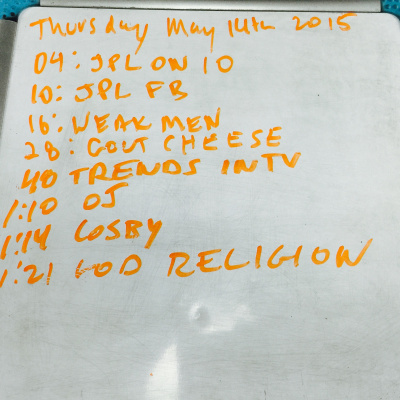 Thursday May 14th 2015
04: JPL ON 10
10: JPL FB
16: WEAK MEN
28: GOUT CHEESE
40 TRENDS IN TV
1:10 OJ
1:14 COSBY
1:21 GOD RELIGION